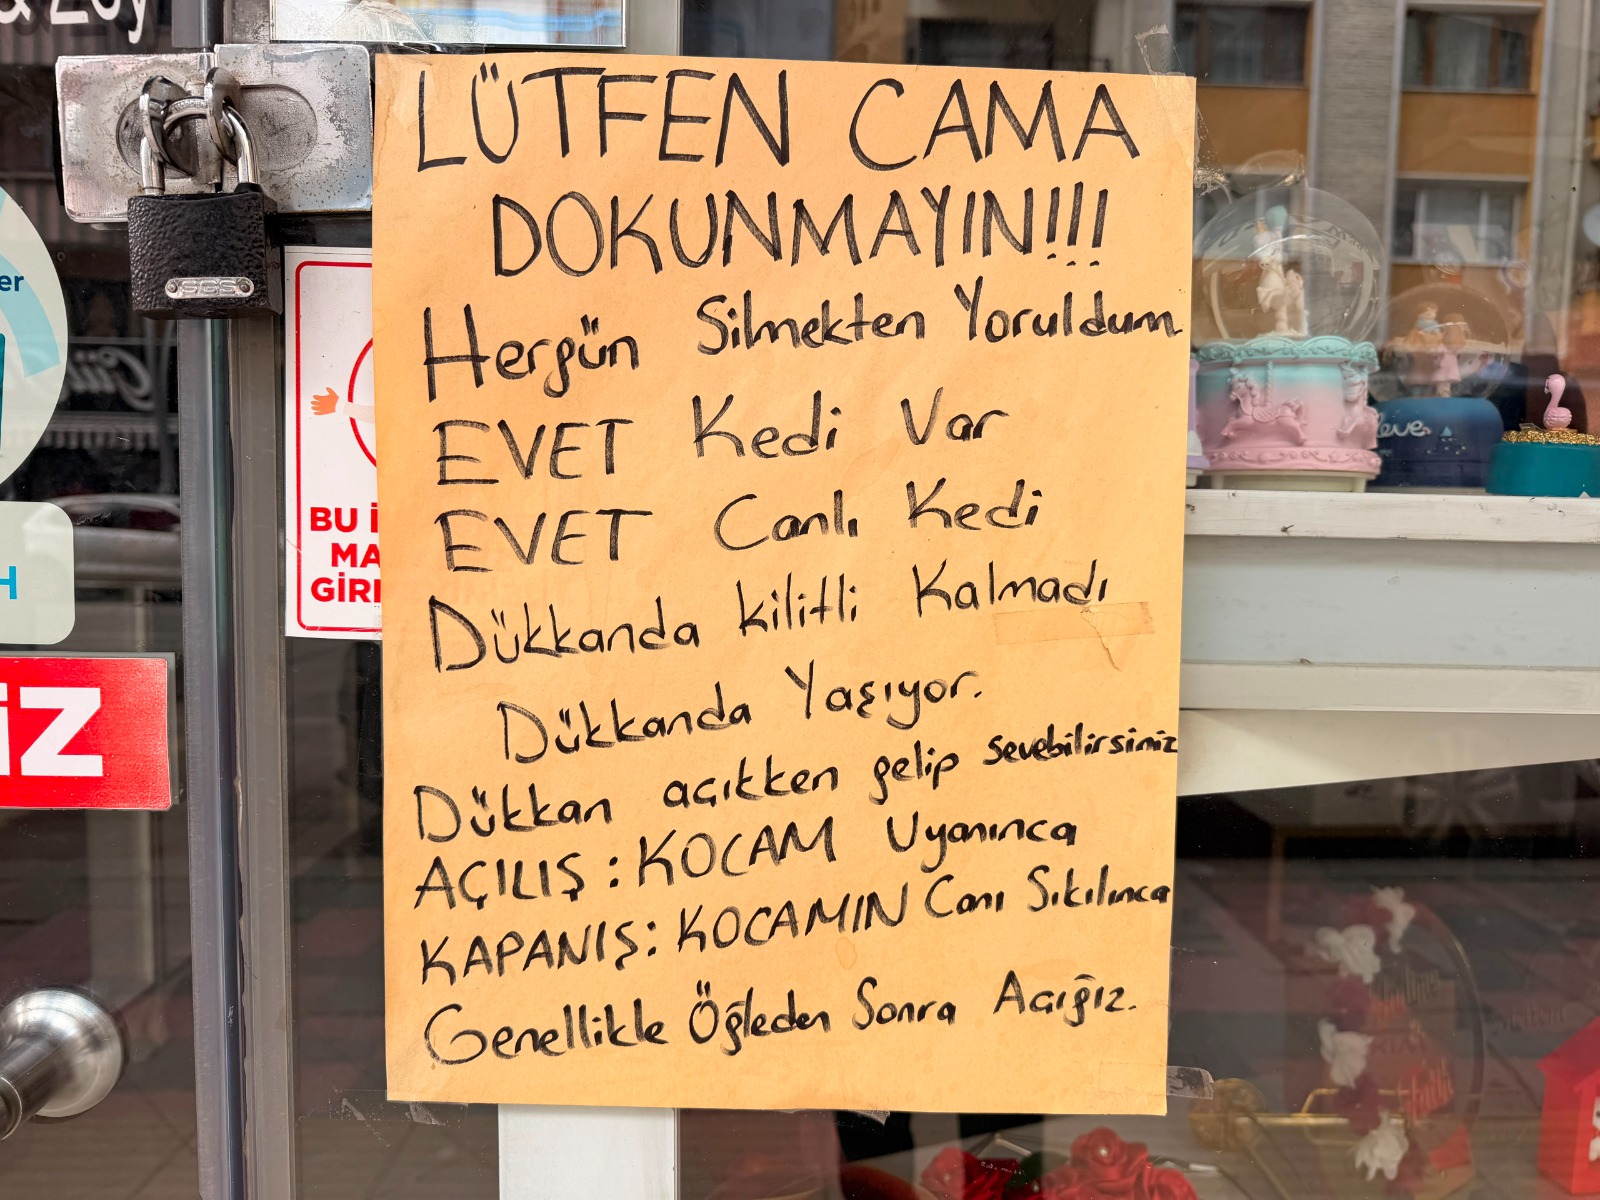 LÜTFEN CAMA
DOKUNMAYIN!!!
Hergün Silmekten Yoruldum
EVET Kedi Var
EVET Canlı Kedi
Dükkanda kilitli Kalmadı
Dükkanda Yaşıyor.
Dükkan açıkken gelip sevebilirsiniz
AÇILIŞ : KOCAM Uyanınca
KAPANIŞ: KOCAMIN Canı Sıkılınca
Genellikle Öğleden Sonra Açığız.
SGS
BU
MA
GİRİ
er
H
İZ